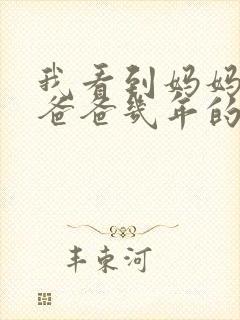 我看到妈妈
爸爸几年的
丰东河